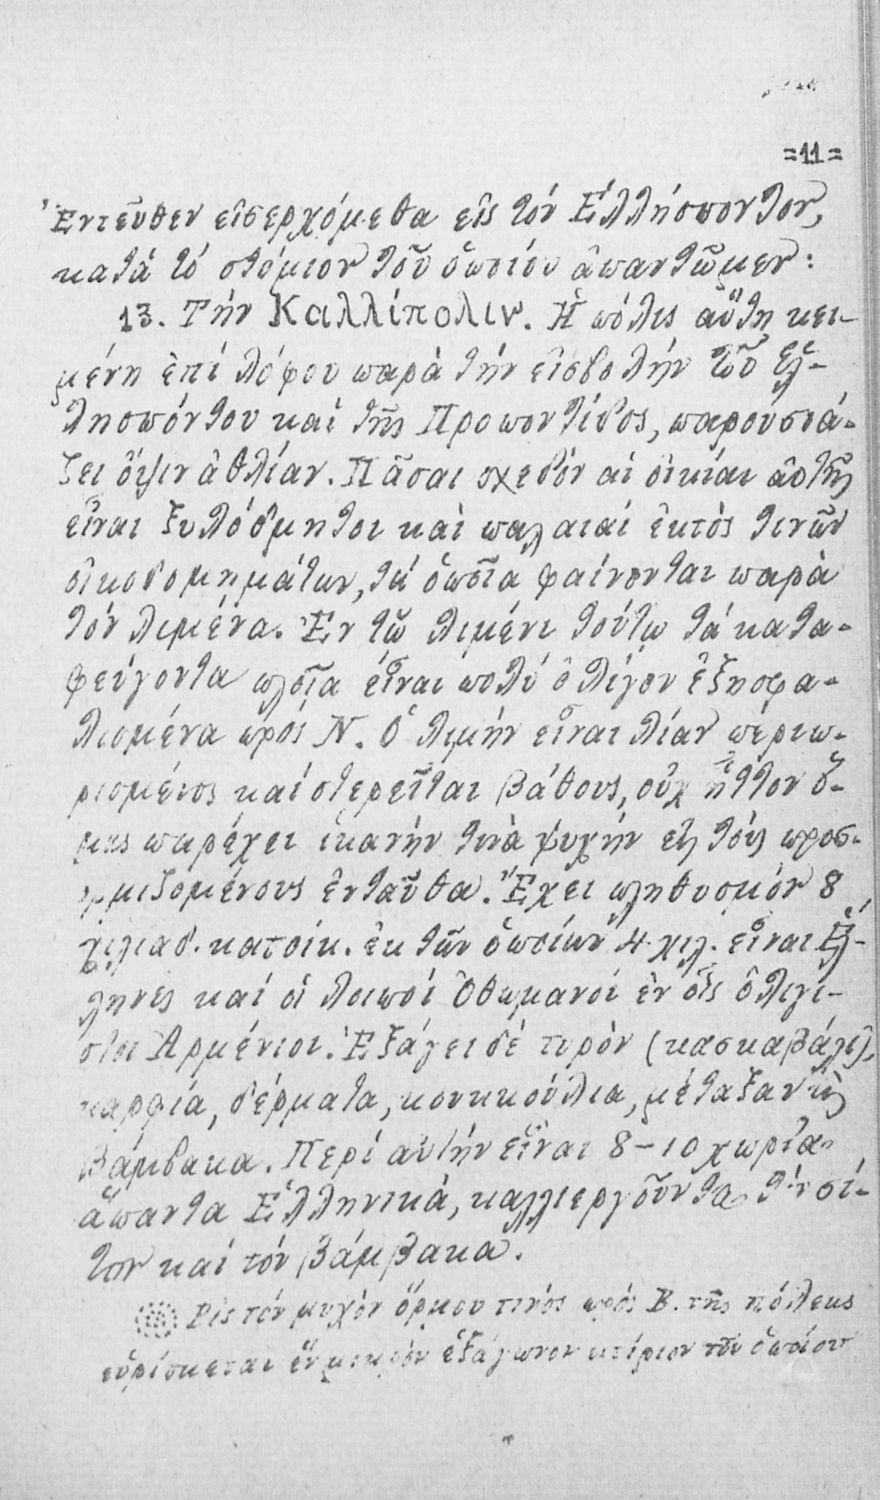 =11=
Ἐντεῦθεν εἰσερχόμεθα εἰς τόν Ἑλλήσποντον,
κατά τό στόμιον τοῦ ὁποίου ἀπαντῶμεν:
13. Τήν Καλλίπολιν. Ἡ πόλις αὕτη κει-
μένη ἐπί λόφου παρά τήν εἰσβολήν τοῦ Ἑλ-
λησπόντου καί τῆς Προποντίδος, παρουσιά-
ζει ὄψιν ἀθλίαν. Πᾶσαι σχεδόν αἱ οἰκίαι αὐτῆς
εἶναι ξυλόδμητοι καί παλαιαί ἐκτός τινῶν
οἰκοδομημάτων, τά ὁποῖα φαίνονται παρά
τόν λιμένα. Ἐν τῷ λιμένι τούτῳ τά κατα-
φεύγοντα πλοῖα εἶναι πολύ ὀλίγον ἐξησφα-
λισμένα πρός Ν. Ὁ λιμήν εἶναι λίαν περιω-
ρισμένος καί στερεῖται βάθους, οὐχ ἧττον ὅ-
μως παρέχει ἱκανήν τινά ψυχήν εἰς τούς προσ-
ορμιζομένους ἐνταῦθα. Ἔχει πληθυσμόν 8
χιλιάδ. κατοίκ. ἐκ τῶν ὁποίων 4 χιλ. εἶναι Ἕλ-
ληνες καί οἱ λοιποί Ὀθωμανοί ἐν οἷς ὀλίγι-
στοι Ἀρμένιοι. Ἐξάγει δέ τυρόν (κασκαβάλι),
καρφία, δέρματα, κουκκούλια, μέταξαν καί
βάμβακα. Περί αὐτήν εἶναι 8-10 χωρία
ἅπαντα Ἑλληνικά, καλλιεργοῦντα τόν σί-
τον καί τόν βάμβακα.
Εἰς τόν μυχόν ὅρμου τινός πρός Β. τῆς πόλεως
εὑρίσκεται ἕν μικρόν ἑξάγωνον κτίριον τοῦ ὁποίου